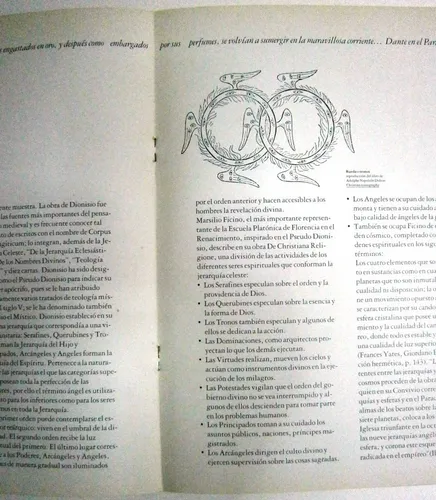 engastados en oro, y después como embargados por sus perfumes, se volvían a sumergir en la maravillosa corriente... Dante en el Par
ente muestra. La obra de Dionisio fue
las fuentes más importantes del pensa-
medieval y es frecuente conocer tal
de escritos con el nombre de Corpus
los Nombres Divinos", "Teología
y diez cartas. Dionisio ha sido desig-
como el Pseudo Dionisio para indicar su
apócrifo, pues se le han atribuido
varios tratados de teología mís-
siglo V; se le ha denominado también
el Místico. Dionisio estableció en su
jerarquía que correspondía a una vi-
Serafines, Querubines y Tro-
man la Jerarquía del Hijo y
Arcángeles y Ángeles forman la
del Espíritu. Pertenece a la natura-
las jerarquías el que las categorías supe-
posean toda la perfección de las
por ello el término ángel es utiliza-
para los inferiores como para los seres
en toda la Jerarquía.
orden puede contemplarse el es-
viven en el umbral de la di-
El segundo orden recibe la luz
del primero. El último lugar corres-
a los Arcángeles y Ángeles.
de manera gradual son iluminados
por el orden anterior y hacen accesibles a los
hombres la revelación divina.
Marsilio Ficino, el más importante represen-
tante de la Escuela Platónica de Florencia en el
Renacimiento, inspirado en el Pseudo Dioni-
sio, describe en su obra De Christiana Reli-
gione, una división de las actividades de los
diferentes seres espirituales que conforman la
jerarquía celeste:
• Los Serafines especulan sobre el orden y la
providencia de Dios.
• Los Querubines especulan sobre la esencia y
la forma de Dios.
• Los Tronos también especulan y algunos de
ellos se dedican a la acción.
• Las Dominaciones, como arquitectos pro-
yectan lo que los demás ejecutan.
• Las Virtudes realizan, mueven los cielos y
actúan como instrumentos divinos en la eje-
cución de los milagros.
• Las Potestades vigilan que el orden del go-
bierno divino no se vea interrumpido y al-
gunos de ellos descienden para tomar parte
en los problemas humanos.
• Los Principados toman a su cuidado los
asuntos públicos, naciones, príncipes ma-
gistrados.
• Los Arcángeles dirigen el culto divino y
ejercen supervisión sobre las cosas sagradas.
Christian iconography
• Los Ángeles se ocupan de los
monta y tienen a su cuidado
bajo calidad de ángeles de la
• También se ocupa Ficino de
den cósmico, completado co
denes espirituales en los sig
términos:
Los cuatro elementos que se
to en sustancias como en cua
planetas que no son inmutab
cualidad ni disposición; la
ne un movimiento opuesto
se caracterizan por su cando
esfera cristalina que posee u
miento y la cualidad del can
reo, donde todo es estable y
una cualidad de luz superior
(Frances Yates, Giordano B
ción hermética, p. 143). "L
rentes entre las jerarquías y
cosmos proceden de la obra
quien en su Convivio corre
quías y esferas y en el Para
almas de los beatos sobre l
siete planetas, coloca a los
Iglesia triunfante en la octa
las nueve jerarquías angéli
esfera, y corona este esque
radicada en el empíreo"